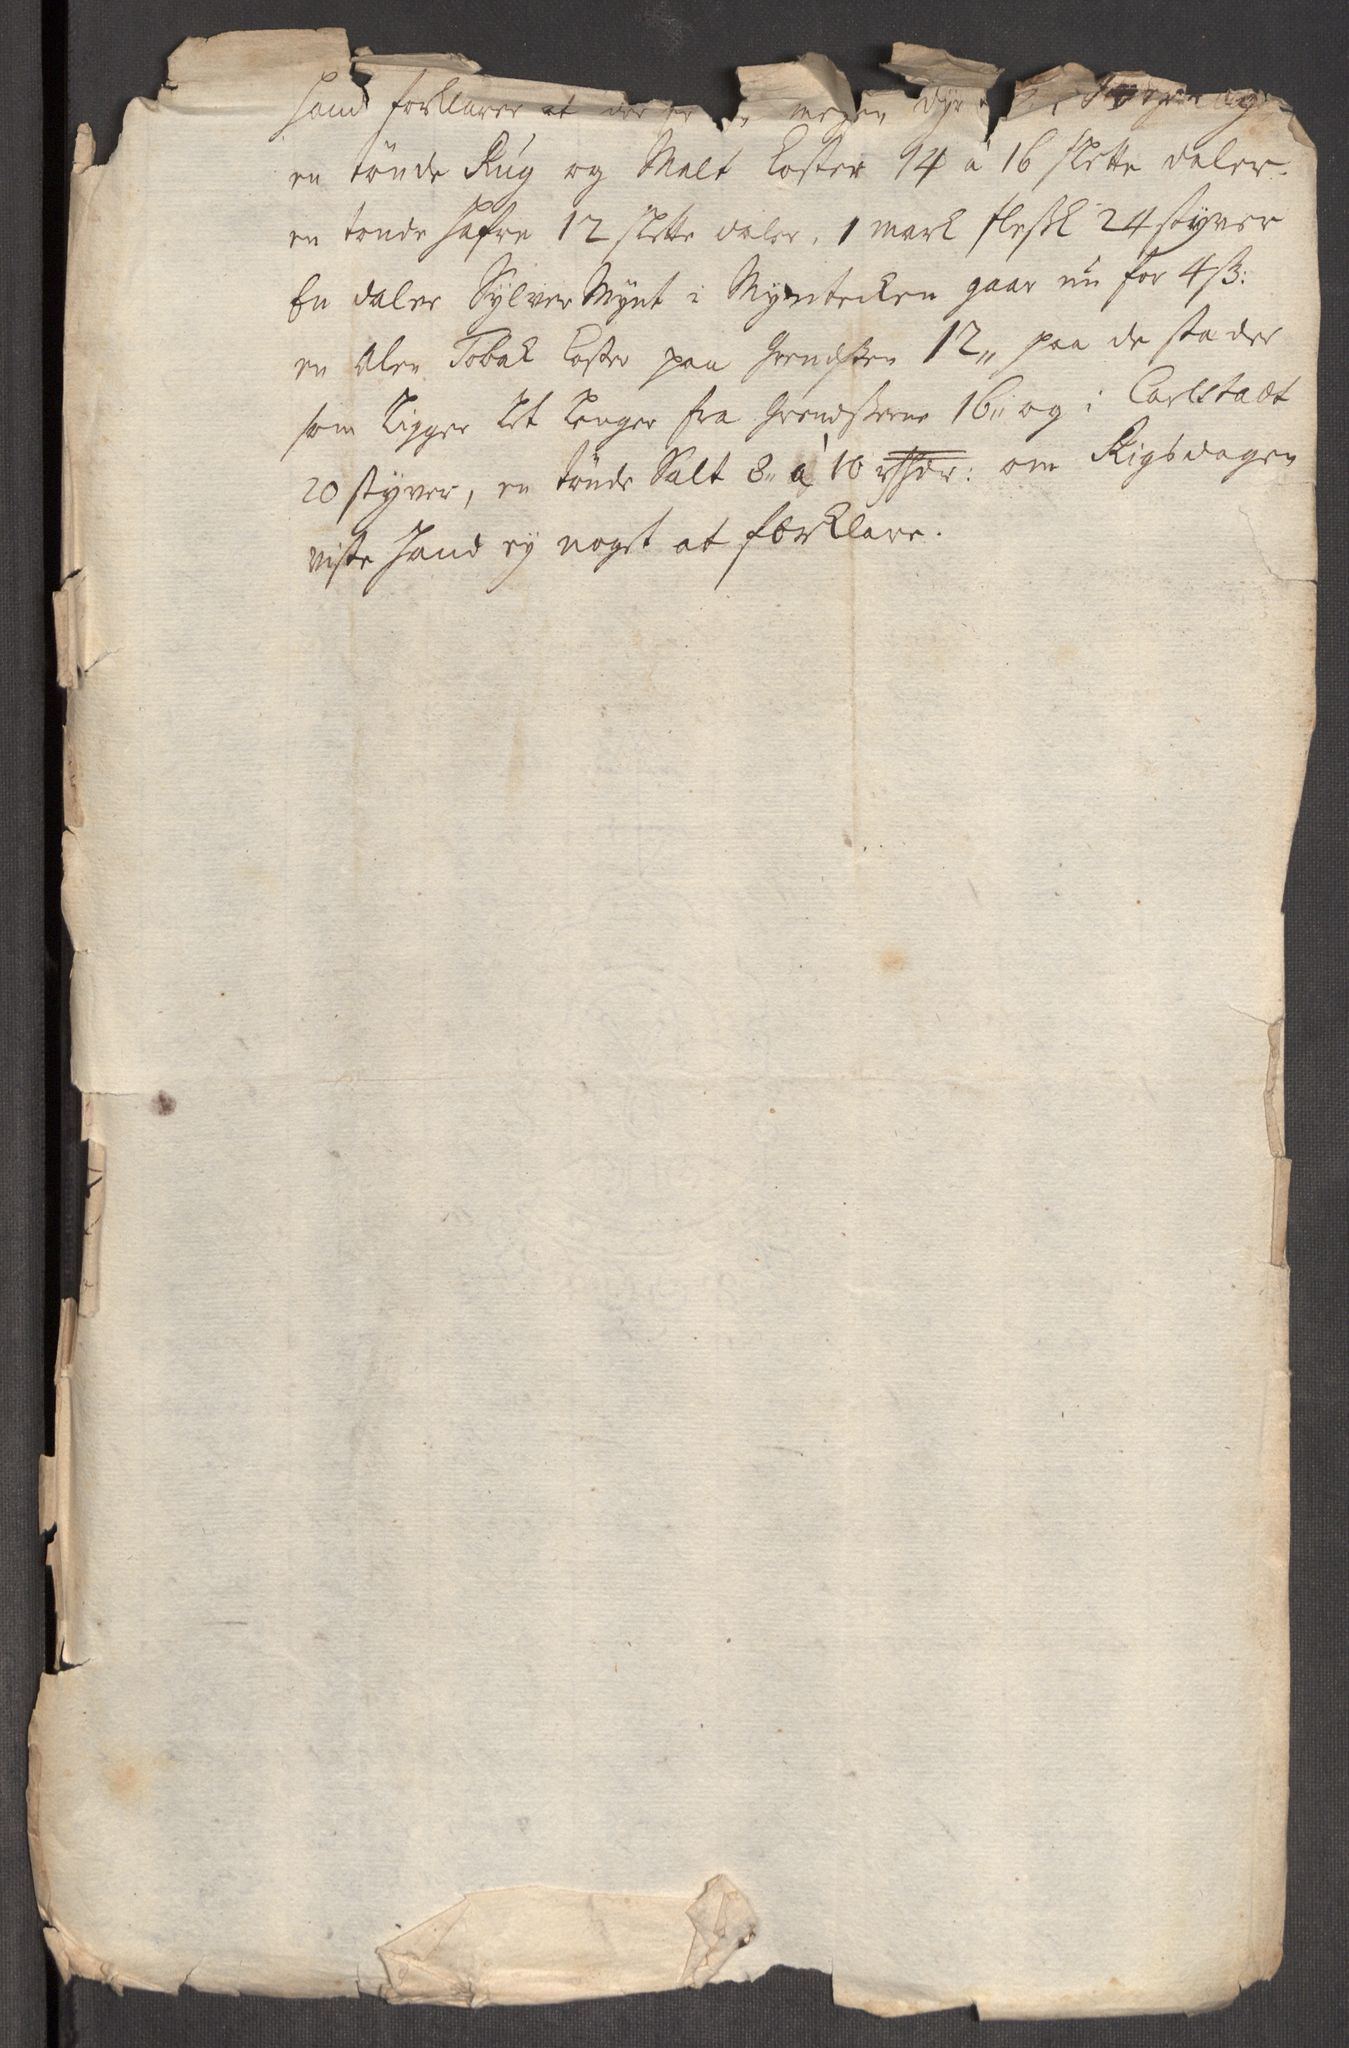 Hand forklarer at der er en megen dyr i Sverrig og
en tönde Rug og Malt koster 14 à 16 slette daler.
en tonde Hafre 12 slette daler, 1 mark flesk 24 styver
En daler Sylver Mynt i Myntecken gaar nu for 4 ß:
en Alen Tobak koster paa Grendsen 12,, paa de stader
som Ligger Lit Lenger fra Grendserne 16,, og i Carlstadt
20 styver, en tönde Salt 8,, à 10 rthdr: om Rigsdagen
viste Hand ey noget at forklare.